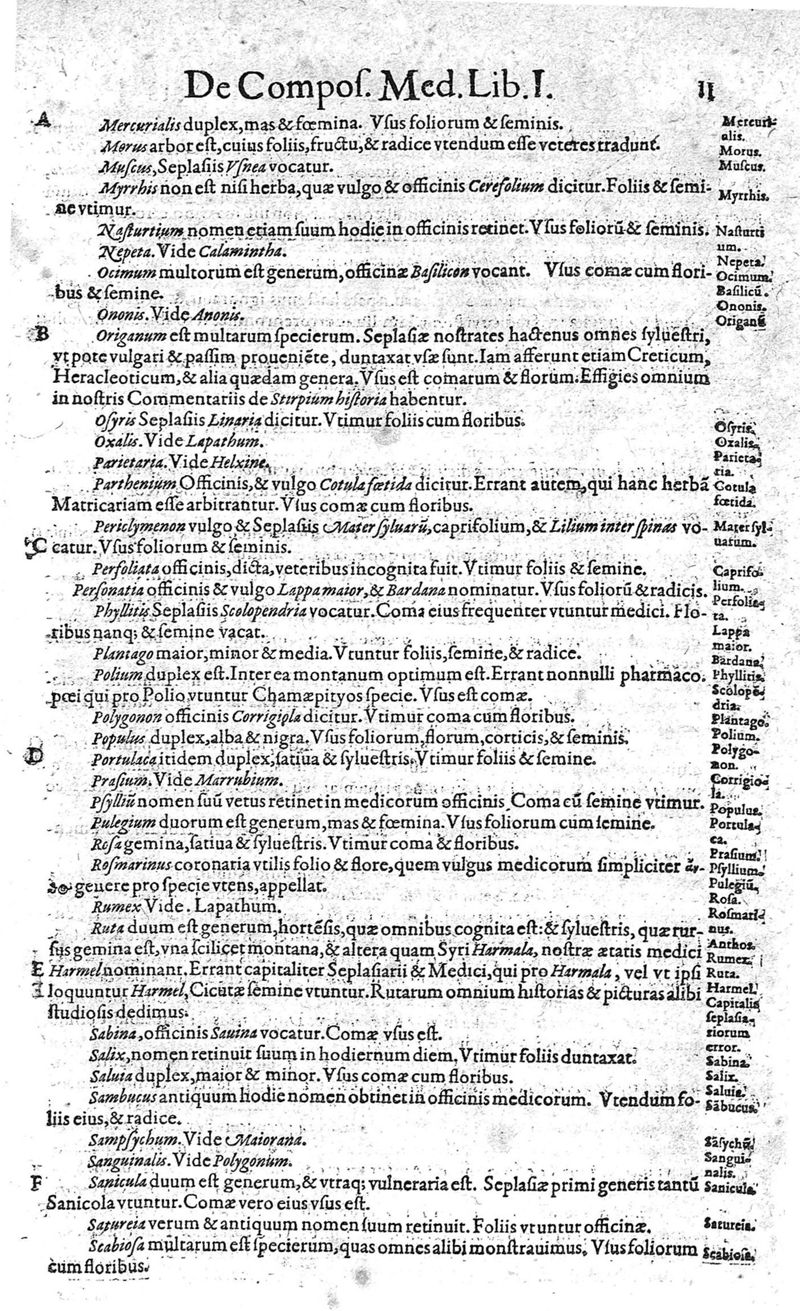 De Compos. Med. Lib. I. 11
A Mercurialis duplex, mas & fœmina. Vsus foliorum & seminis.
Morus arbor est, cuius foliis, fructu, & radice vtendum esse veteres tradunt.
Muscus, Seplasiis Vsnea vocatur.
Myrrhis non est nisi herba, quæ vulgo & officinis Cerefolium dicitur. Foliis & semi-
ne vtimur.
Nasturtium nomen etiam suum hodie in officinis retinet. Vsus foliorū & seminis.
Nepeta. Vide Calamintha.
Ocimum multorum est generum, officinæ Basilicon vocant. Vsus comæ cum flori-
bus & semine.
Ononis. Vide Anonis.
B Origanum est multarum specierum. Seplasiæ nostrates hactenus omnes syluestri,
vt pote vulgari & passim proueniēte, duntaxat vsæ sunt. Iam afferunt etiam Creticum,
Heracleoticum, & alia quædam genera. Vsus est comarum & florum. Effigies omnium
in nostris Commentariis de Stirpium historia habentur.
Osyris Seplasiis Linaria dicitur. Vtimur foliis cum floribus.
Oxalis. Vide Lapathum.
Parietaria. Vide Helxine.
Parthenium Officinis, & vulgo Cotula fœtida dicitur. Errant autem, qui hanc herbā
Matricariam esse arbitrantur. Vsus comæ cum floribus.
Periclymenon vulgo & Seplasiis Mater syluarū, caprifolium, & Lilium inter spinas vo-
C catur. Vsus foliorum & seminis.
Perfoliata officinis, dicta, veteribus incognita fuit. Vtimur foliis & semine.
Personatia officinis & vulgo Lappa maior, & Bardana nominatur. Vsus foliorū & radicis.
Phyllitis Seplasiis Scolopendria vocatur. Coma eius frequenter vtuntur medici. Flo-
ribus nanq; & semine vacat.
Plantago maior, minor & media. Vtuntur foliis, semine, & radice.
Polium duplex est. Inter ea montanum optimum est. Errant nonnulli pharmaco-
pœi qui pro Polio vtuntur Chamæpityos specie. Vsus est comæ.
Polygonon officinis Corrigiola dicitur. Vtimur coma cum floribus.
Populus duplex, alba & nigra. Vsus foliorum, florum, corticis, & seminis.
D Portulaca itidem duplex, satiua & syluestris. Vtimur foliis & semine.
Prasium. Vide Marrubium.
Psylliū nomen suū vetus retinet in medicorum officinis Coma cū semine vtimur.
Pulegium duorum est generum, mas & fœmina. Vsus foliorum cum semine.
Rosa gemina, satiua & syluestris. Vtimur coma & floribus.
Rosmarinus coronaria vtilis folio & flore, quem vulgus medicorum simpliciter ἄν-
θος genere pro specie vtens, appellat.
Rumex Vide. Lapathum.
Ruta duum est generum, hortēsis, quæ omnibus cognita est: & syluestris, quæ rur-
sus gemina est, vna scilicet montana, & altera quam Syri Harmala, nostræ ætatis medici
E Harmel nominant. Errant capitaliter Seplasiarii & Medici, qui pro Harmala, vel vt ipsi
loquuntur Harmel, Cicutæ semine vtuntur. Rutarum omnium historias & picturas alibi
studiosis dedimus.
Sabina, officinis Sauina vocatur. Comæ vsus est.
Salix, nomen retinuit suum in hodiernum diem. Vtimur foliis duntaxat.
Saluia duplex, maior & minor. Vsus comæ cum floribus.
Sambucus antiquum hodie nomen obtinet in officinis medicorum. Vtendum fo-
liis eius, & radice.
Sampsychum. Vide Maiorana.
Sanguinalis. Vide Polygonum.
F Sanicula duum est generum, & vtraq; vulneraria est. Seplasiæ primi generis tantū
Sanicola vtuntur. Comæ vero eius vsus est.
Satureia verum & antiquum nomen suum retinuit. Foliis vtuntur officinæ.
Scabiosa multarum est specierum, quas omnes alibi monstrauimus. Vsus foliorum
cum floribus.
Mercuri-
alis.
Morus.
Muscus.
Myrrhis.
Nasturti
um.
Nepeta.
Ocimum.
Basilicū.
Ononis.
Origanū
Osyris.
Oxalis.
Parieta-
ria.
Cotula
fœtida.
Mater syl-
uarum.
Caprifo-
lium.
Perfolia-
ta.
Lappa
maior.
Bardana.
Phyllitis.
Scolopē-
dria.
Plantago.
Polium.
Polygo-
non.
Corrigio-
la.
Populus.
Portula-
ca.
Prasium.
Psyllium.
Pulegiū.
Rosa.
Rosmari-
nus.
Anthos.
Rumex.
Ruta.
Harmel.
Capitalis
seplasia-
riorum
error.
Sabina.
Salix.
Saluia.
Sābucus.
Sāsychū.
Sangui-
nalis.
Sanicula.
Satureia.
Scabiosa.